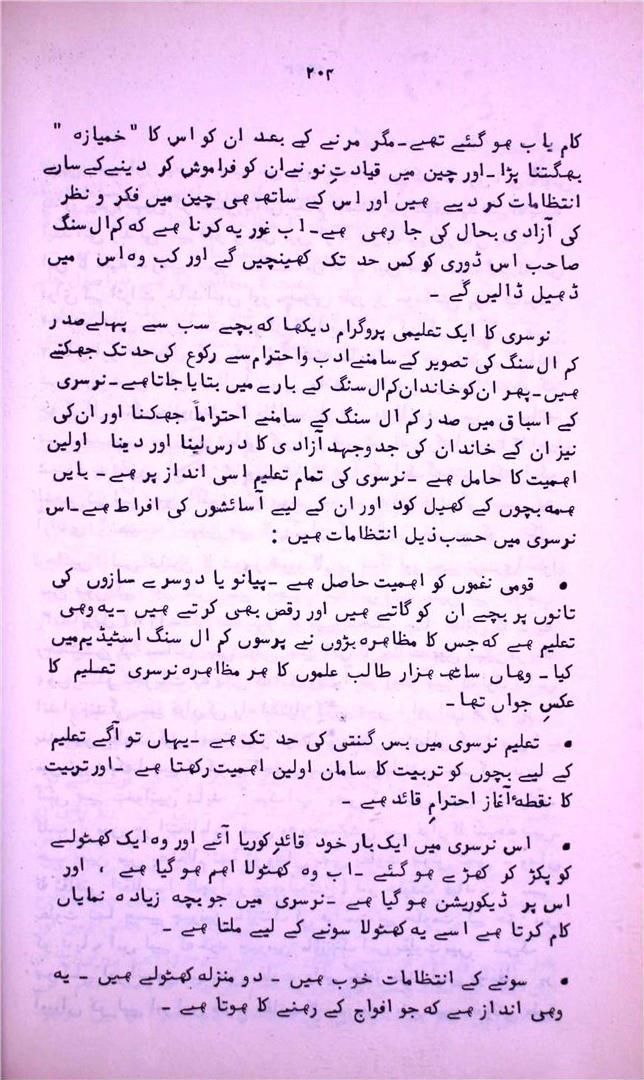 ۲۰۴
کام یاب ھو گئے تھے۔ مگر مرنے کے بعد ان کو اس کا " خمیازہ "
بھگتنا پڑا ۔ اور چین میں قیادتِ نو نے ان کو فراموش کر دینے کے سارے
انتظامات کر دیے ھیں اور اس کے ساتھ ھی چین میں فکر و نظر
کی آزادی بحال کی جا رھی ھے۔ اب غور یہ کرنا ھے کہ کم ال سنگ
صاحب اس ڈوری کو کس حد تک کھینچیں گے اور کب وہ اس میں
ڈھیل ڈالیں گے ۔
نرسری کا ایک تعلیمی پروگرام دیکھا کہ بچے سب سے پہلے صدر
کم ال سنگ کی تصویر کے سامنے ادب و احترام سے رکوع کی حد تک جھکتے
ھیں۔ پھر ان کو خاندان کم ال سنگ کے بارے میں بتایا جاتا ھے۔ نرسری
کے اسباق میں صدر کم ال سنگ کے سامنے احتراماً جھکنا اور ان کی
نیز ان کے خاندان کی جدوجہد آزادی کا درس لینا اور دینا اولین
اھمیت کا حامل ھے ۔ نرسری کی تمام تعلیم اسی انداز پر ھے ۔ بایں
ھمہ بچوں کے کھیل کود اور ان کے لیے آسائشوں کی افراط ھے۔ اس
نرسری میں حسب ذیل انتظامات ھیں :
• قومی نغموں کو اھمیت حاصل ھے ۔ پیانو یا دوسرے سازوں کی
تانوں پر بچے ان کو گاتے ھیں اور رقص بھی کرتے ھیں ۔ یہ وھی
تعلیم ھے کہ جس کا مظاھرہ بڑوں نے پرسوں کم ال سنگ اسٹیڈیم میں
کیا ۔ وھاں ساٹھ ھزار طالب علموں کا ھر مظاھرہ نرسری تعلیم کا
عکسِ جواں تھا ۔
• تعلیم نرسری میں بس گنتی کی حد تک ھے ۔ یہاں تو آگے تعلیم
کے لیے بچوں کو تربیت کا سامان اولین اھمیت رکھتا ھے ۔ اور تربیت
کا نقطۂ آغاز احترامِ قائد ھے ۔
• اس نرسری میں ایک بار خود قائدِ کوریا آئے اور وہ ایک کھٹولے
کو پکڑ کر کھڑے ھو گئے ۔ اب وہ کھٹولا اھم ھو گیا ھے ، اور
اس پر ڈیکوریشن ھو گیا ھے ۔ نرسری میں جو بچہ زیادہ نمایاں
کام کرتا ھے اسے یہ کھٹولا سونے کے لیے ملتا ھے ۔
• سونے کے انتظامات خوب ھیں ۔ دو منزلہ کھٹولے ھیں ۔ یہ
وھی انداز ھے کہ جو افواج کے رھنے کا ھوتا ھے ۔